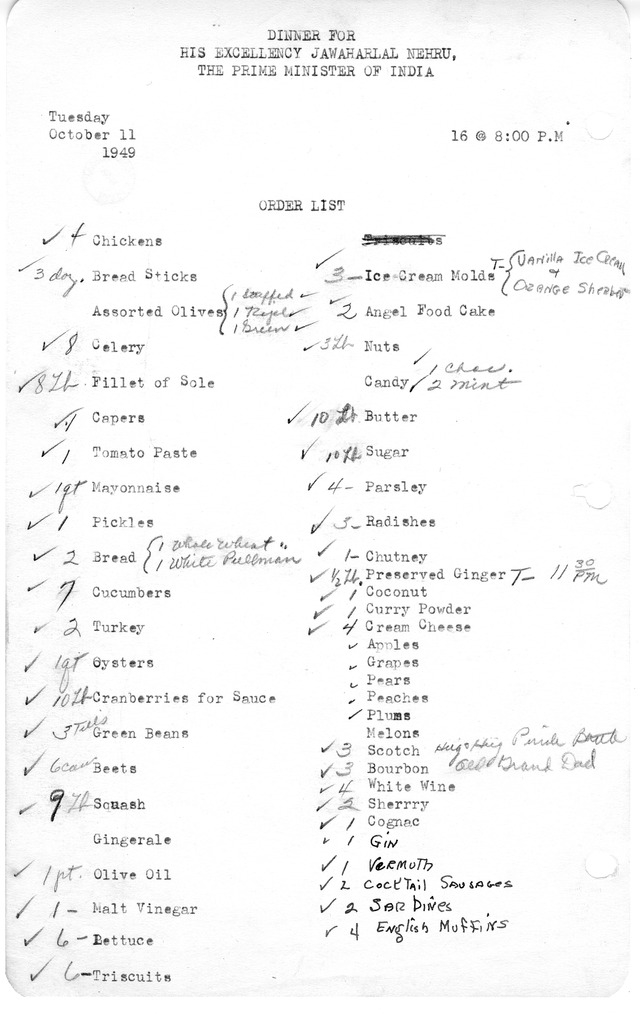 DINNER FOR
HIS EXCELLENCY JAWAHARLAL NEHRU,
THE PRIME MINISTER OF INDIA
Tuesday
October 11
1949
16 @ 8:00 P.M.
ORDER LIST
✓ 4 Chickens
✓ 3 doz. Bread Sticks
Assorted Olives { 1 Stuffed ✓
1 ✓
1 Green ✓
✓ 8 Celery
✓ 8 Lb Fillet of Sole
✓ 1 Capers
✓ 1 Tomato Paste
✓ 1 qt Mayonnaise
✓ 1 Pickles
✓ 2 Bread { 1 Whole Wheat
1 White Pullman
✓ 7 Cucumbers
✓ 2 Turkey
✓ 1 qt Oysters
✓ 10 Lb Cranberries for Sauce
✓ 3 Green Beans
✓ 6 can Beets
✓ 9 Lb Squash
Gingerale
✓ 1 pt. Olive Oil
✓ 1 - Malt Vinegar
✓ 6 - Lettuce
✓ 6 - Triscuits
Triscuits
✓ 3 - Ice Cream Molds T- { Vanilla Ice Cream
+
Orange Sherbet
✓ 2 Angel Food Cake
✓ 3 Lb Nuts
Candy ✓ 1 Choc.
✓ 2 mint
✓ 10 Lb Butter
✓ 10 Lb Sugar
✓ 4 - Parsley
✓ 3 - Radishes
✓ 1 - Chutney
✓ 1/2 Lb. Preserved Ginger T- 11 30 PM
✓ 1 Coconut
✓ 1 Curry Powder
✓ 4 Cream Cheese
✓ Apples
✓ Grapes
✓ Pears
✓ Peaches
✓ Plums
Melons
✓ 3 Scotch Haig + Haig Pinch Bottle
✓ 3 Bourbon Old Grand Dad
✓ 4 White Wine
✓ 2 Sherrry
✓ 1 Cognac
✓ 1 GIN
✓ 1 VERMOUTH
✓ 2 COCKTAIL SAUSAGES
✓ 2 SARDINES
✓ 4 ENGLISH MUFFINS